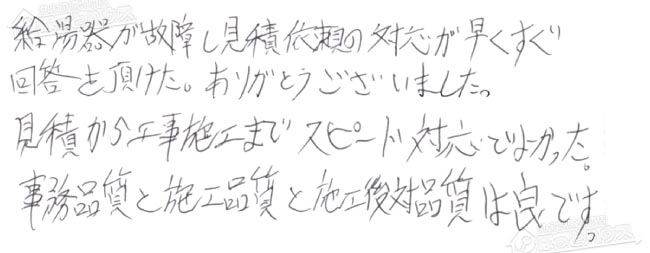 給湯器が故障し見積依頼の対応が早くすぐ
回答を頂けた。ありがとうございました。
見積から工事施工までスピード対応でよかった。
事務品質と施工品質と施工後対品質は良です。